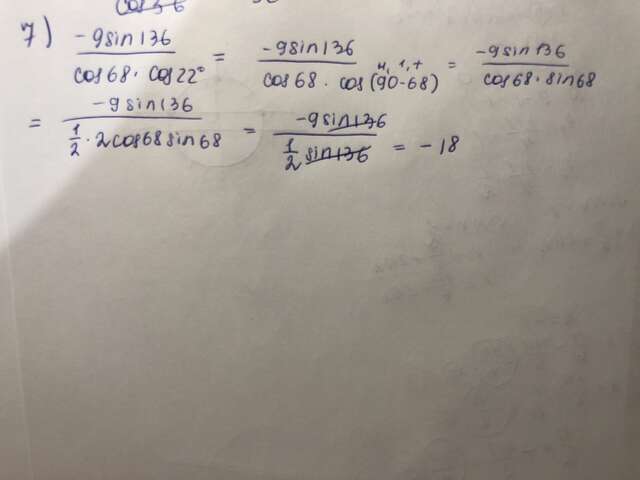 cos56
7) -9sin136 / cos68·cos22° = -9sin136 / cos68·cos(90-68) = -9sin136 / cos68·sin68
= -9sin136 / 1/2·2cos68sin68 = -9sin136 / 1/2 sin136 = -18